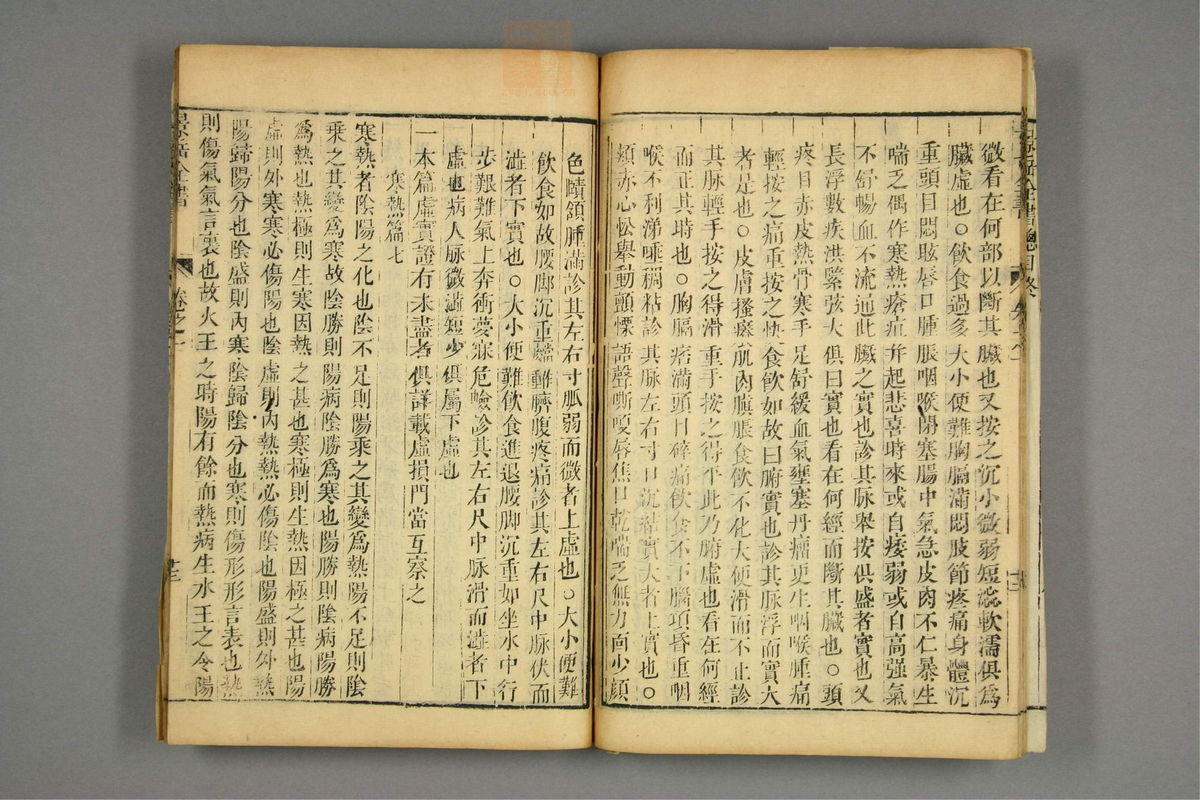 微看在何部以斷其臟也又按之沉小微弱短澁軟濡俱爲
臟虛也○飲食過多大小便難胸膈滿悶肢節疼痛身體沉
重頭目悶眩唇口腫脹咽喉閉塞腸中氣急皮肉不仁暴生
喘乏偶作寒熱瘡疽并起悲喜時來或自痿弱或自高强氣
不舒暢血不流通此臟之實也診其脉舉按俱盛者實也又
長浮數疾洪緊弦大俱曰實也看在何經而斷其臟也○頭
疼目赤皮熱骨寒手足舒緩血氣壅塞丹瘤更生咽喉腫痛
輕按之痛重按之快食飲如故曰腑實也診其脉浮而實大
者是也○皮膚搔癢肌肉䐜脹食飲不化大便滑而不止診
其脉輕手按之得滑重手按之得平此乃腑虛也看在何經
而正其時也○胸膈痞滿頭目碎痛飲食不下腦項昏重咽
喉不利涕唾稠粘診其脉左右寸口沉結實大者上實也○
頰赤心忪舉動顫慄語聲嘶嗄唇焦口乾喘乏無力面少顔
色頤頷腫滿診其左右寸脉弱而微者上虛也○大小便難
飲食如故腰脚沉重臍腹疼痛診其左右尺中脉伏而
澁者下實也○大小便難飲食進退腰脚沉重如坐水中行
步艱難氣上奔衝夢寐危嶮診其左右尺中脉滑而澁者下
虛也病人脉微澁短少俱屬下虛也
一本篇虛實證有未盡者俱詳載虛損門當互察之
寒熱篇七
寒熱者陰陽之化也陰不足則陽乘之其變爲熱陽不足則陰
乘之其變爲寒故陰勝則陽病陰勝爲寒也陽勝則陰病陽勝
爲熱也熱極則生寒因熱之甚也寒極則生熱因極之甚也陽
虛則外寒寒必傷陽也陰虛則內熱熱必傷陰也陽盛則外熱
陽歸陽分也陰盛則內寒陰歸陰分也寒則傷形形言表也熱
則傷氣氣言裏也故火王之時陽有餘而熱病生水王之令陽
景岳全書
卷之一
十三